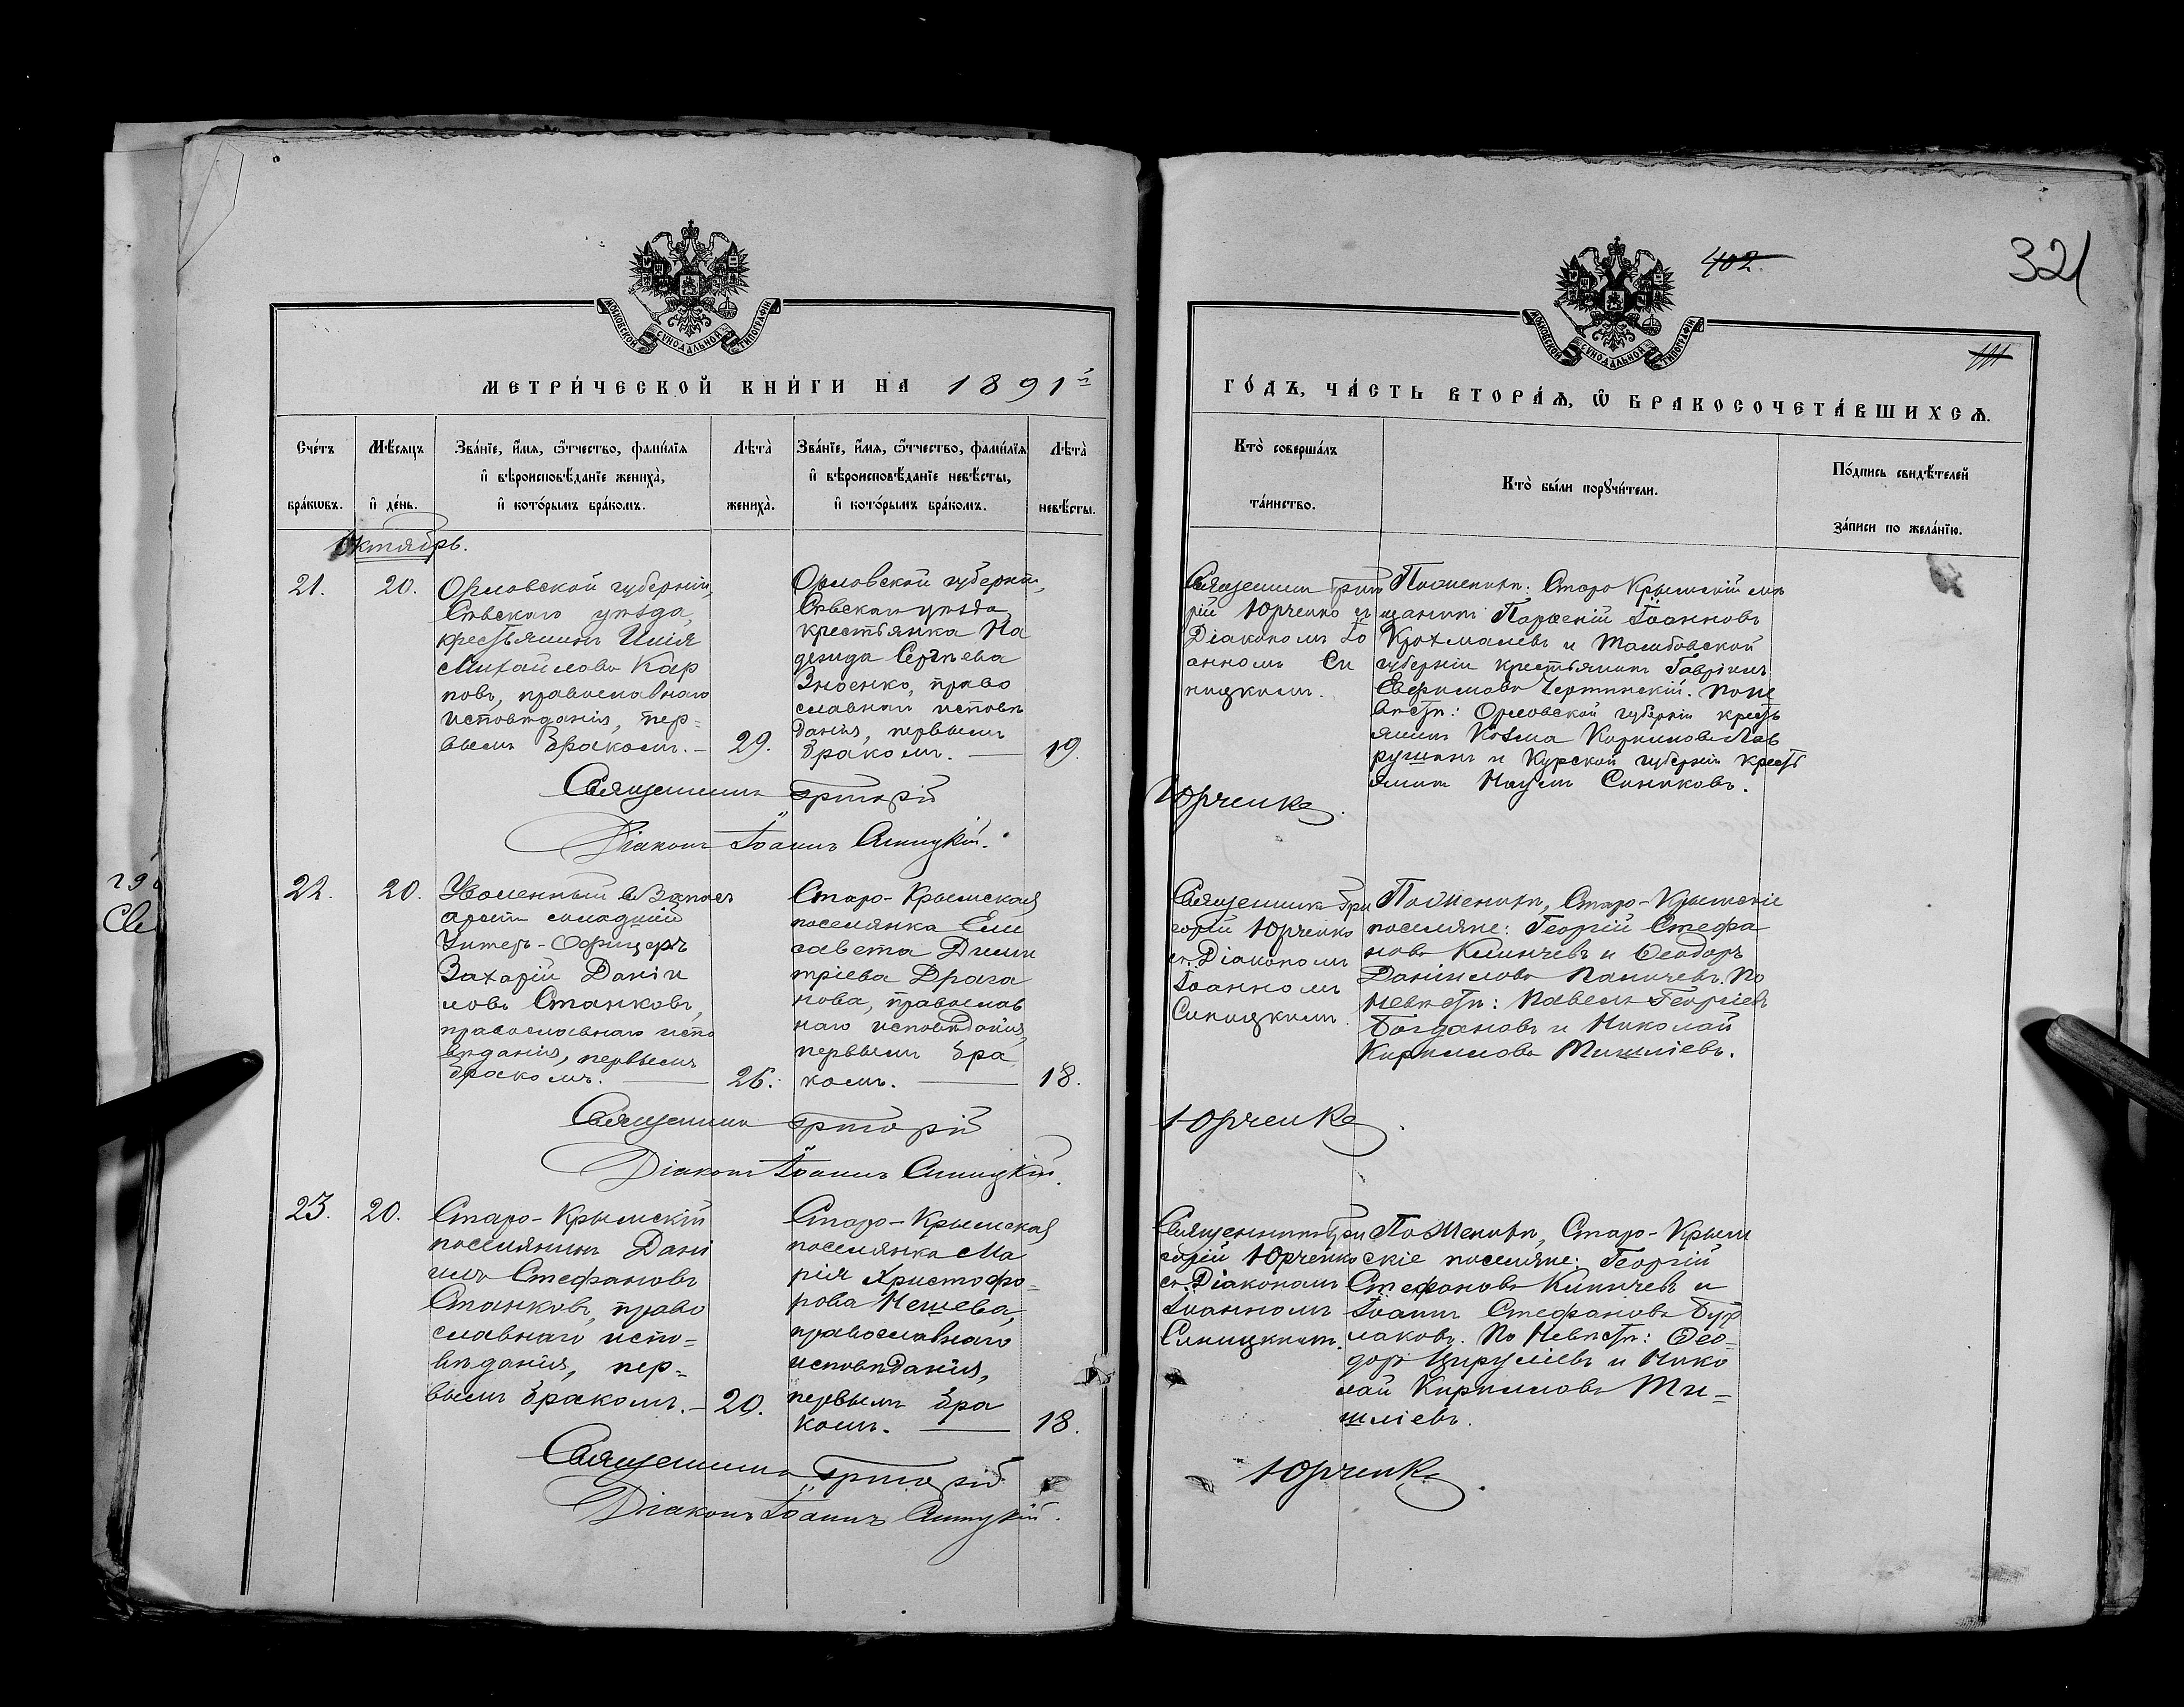 402.
321
МОСКОВСКОЙ СѴНОДАЛЬНОЙ ТИПОГРАФІИ
МОСКОВСКОЙ СѴНОДАЛЬНОЙ ТИПОГРАФІИ
МЕТРИ́ЧЕСКОЙ КНИ́ГИ НА 1891й
ГО́ДЪ, ЧА́СТЬ ВТОРА́Ѧ, Ѽ БРАКОСОЧЕТА́ВШИХСѦ.
Сче́тъ
бра́кѡвъ.
Мѣ́сяцъ
и҆ де́нь.
Зва́нїе, и҆́мя, ѻ҆́тчество, фами́лїя
и҆ вѣроисповѣ́данїе жениха̀,
и҆ кото́рымъ бра́комъ.
Лѣ́та
жениха̀.
Зва́нїе, и҆́мя, ѻ҆́тчество, фами́лїя
и҆ вѣроисповѣ́данїе невѣ́сты,
и҆ кото́рымъ бра́комъ.
Лѣ́та
невѣ́сты.
Кто̀ соверша́лъ
та́инство.
Кто̀ бы́ли порꙋчи́тели.
По́дпись свидѣ́телей
за́писи по жела́нїю.
Октябрь.
21.
20.
Орловской губерніи,
Сѣвскаго уѣзда,
крестьянинъ Илія
Михайловъ Кар
повъ, православнаго
исповѣданія, пер-
вымъ бракомъ. –
29.
Орловской губерніи,
Сѣвскаго уѣзда
крестьянка На
дежда Сергѣева
Зноенко, право
славнаго исповѣ
данія, первымъ
бракомъ. —
19.
Священникъ Григо
рій Юрченко съ
Діакономъ Іо
анномъ Си
ницкимъ.
По женихѣ: Старо Крымскій мѣ
щанинъ Парѳеній Іоанновъ
Крохмалевъ и Тамбовской
губерніи крестьянинъ Гавріилъ
Евфимовъ Чертинскій. По не
вѣстѣ: Орловской губерніи кресть
янинъ Козма Кирилловъ Лав
рушинъ и Курской губерніи кресть
янинъ Наумъ Синяковъ.
Священникъ Григорій
Юрченко.
Діаконъ Іоаннъ Синицкій.
22.
20.
Уволенный въ Запасъ
арміи младшій
Унтеръ-Офицеръ
Захарій Даніи
ловъ Станковъ,
православнаго испо
вѣданія, первымъ
бракомъ. —
26.
Старо-Крымская
поселянка Ели
савета Дими
тріева Драга
нова, православ
наго исповѣданія,
первымъ бра
комъ. —
18.
Священникъ Гри
горій Юрченко
съ Діакономъ
Іоанномъ
Синицкимъ.
По женихѣ, Старо-Крымскіе
поселяне: Георгій Стефа
новъ Киличевъ и Ѳеодоръ
Даніиловъ Паничевъ. По
невѣстѣ: Павелъ Георгіевъ
Богдановъ и Николай
Кирилловъ Тишліевъ.
Священникъ Григорій
Юрченко.
Діаконъ Іоаннъ Синицкій.
23.
20.
Старо-Крымскій
поселянинъ Дані
илъ Стефановъ
Станковъ, право
славнаго испо-
вѣданія, пер-
вымъ бракомъ. –
20.
Старо-Крымская
поселянка Ма
рія Христофо-
рова Нешева,
православнаго
исповѣданія,
первымъ бра
комъ. —
18.
Священникъ Гри
горій Юрченко
съ Діакономъ
Іоанномъ
Синицкимъ.
По женихѣ, Старо-Крым
скіе поселяне: Георгій
Стефановъ Киличевъ и
Іоаннъ Стефановъ Бур
лаковъ. По невѣстѣ: Ѳео-
доръ Цируліевъ и Нико
лай Кирилловъ Ти-
шліевъ.
Священникъ Григорій
Юрченко.
Діаконъ Іоаннъ Синицкій.